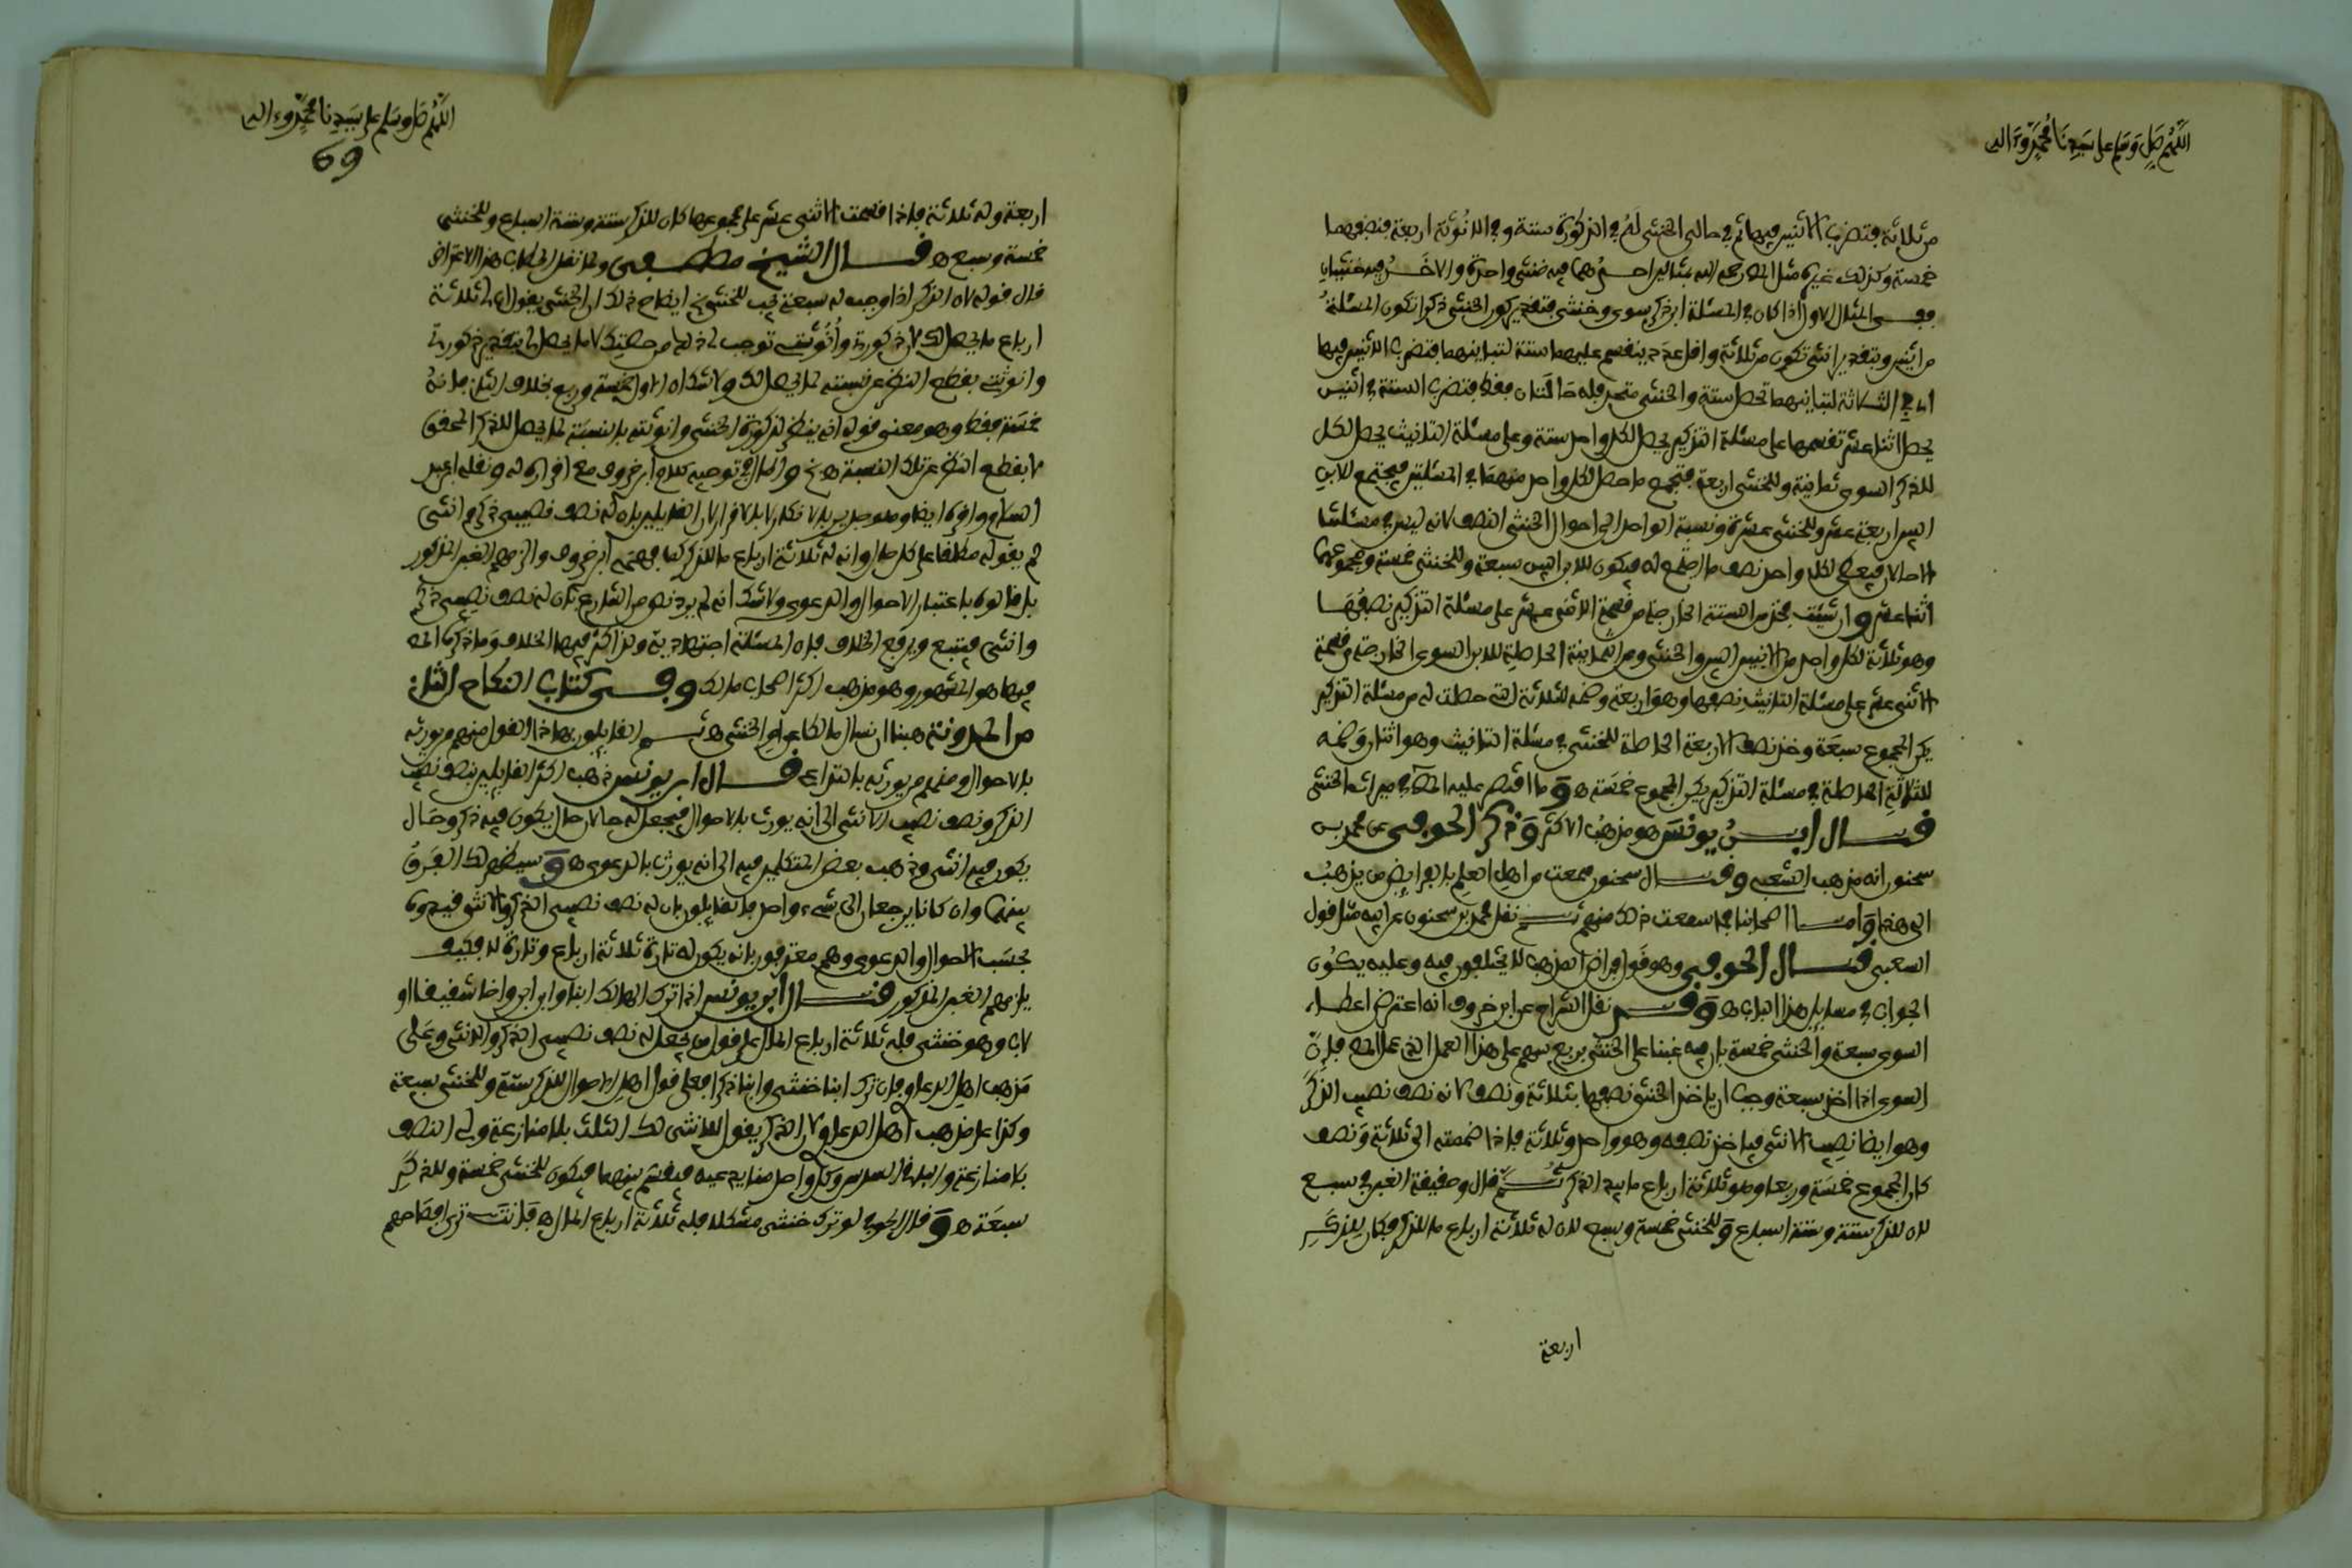 اللهم صل وسلم على سيدنا محمد وءاله
من ثلاثة فتضرب الاثنين فيها ثم في حالتي الخنثى له في الذكورة ستة وفي الانوثة اربعة فنصفهما
خمسة وكذلك غيره مثل المص رحمه الله بمثالين احدهما فيه خنثى واحدة والاخر فيه خنثيان
ففي المثال الاول اذا كان في المسئلة ابن ذكر سوى وخنثى فتقدير كون الخنثى ذكرا تكون المسئلة
من اثنين وبتقديره انثى تكون من ثلاثة واقل عدد ينقسم عليهما ستة لتباينهما فتضرب الاثنين فيها
اي في الثلاثة لتباينهما تحصل ستة والخنثى متحد فله حالتان فقط فتضرب الستة في اثنين
يحصل اثنا عشر تقسمها على مسئلة التذكير يحصل لكل واحد ستة وعلى مسئلة التانيث يحصل لكل
للذكر السوى ثمانية وللخنثى اربعة فتجمع ما حصل لكل واحد منهما في المسئلتين فيجتمع للابن
اليسر اربعة عشر وللخنثى عشرة ونسبة الواحد الى احوال الخنثى النصف لانه ليس في مسئلتنا
الا حالان فيعطى لكل واحد نصف ما اجتمع له فيكون للابن اليس سبعة وللخنثى خمسة ومجموعهما
اثنا عشر وان شئت فخذ من الستة الخارجة من قسمة الاثنى عشر على مسئلة التذكير نصفها
وهو ثلاثة لكل واحد من الابنين اليسر والخنثى ومن الثمانية الحاصلة للابن السوى الخارجة من قسمة
الاثنى عشر على مسئلة التانيث نصفها وهو اربعة وضمه للثلاثة التي حصلت له من مسئلة التذكير
يكن المجموع سبعة وخذ نصف الاربعة الحاصلة للخنثى في مسئلة التانيث وهو اثنان وضمه
للثلاثة الحاصلة في مسئلة التذكير يكن المجموع خمسة ه وما اقتصر عليه المص في ميراث الخنثى
قال ابن يونس هو مذهب الاكثر وذكر الحوفي عن محمد بن
سحنون انه مذهب الشعبي وقال سحنون سمعت من اهل العلم بالفرايض من يذهب
الى هذا واما اصحابنا فما سمعت ذلك منهم ثم نقل محمد بن سحنون عن ابيه مثل قول
الشعبي قال الحوفي وهو قول فراض المذهب لا يختلفون فيه وعليه يكون
الجواب في مسايل هذا الباب ه وقد نقل الشراح عن ابن خروف انه اعترض اعطاء
السوى سبعة والخنثى خمسة بان فيه غبنا على الخنثى بربع سهم على هذا العمل الذي عمل المص فان
السوى اذا اخذ سبعة وجب ان ياخذ الخنثى نصفها بثلاثة ونصف لانه نصف نصيب الذكر
وهو ايضا نصيب الانثى فياخذ نصفه وهو واحد وثلاثة فاذا ضممته الى ثلاثة ونصف
كان المجموع خمسة وربعا وهو ثلاثة ارباع ما بيد الذكر ثم قال وحقيقة الغبن في سبع
لان للذكر ستة وستة اسباع وللخنثى خمسة وسبع لان له ثلاثة ارباع ما للذكر فكان للذكر
اربعة
اللهم صل وسلم على سيدنا محمد وءاله
69
اربعة وله ثلاثة فاذا قسمت الاثنى عشر على مجموعها كان للذكر ستة وستة اسباع وللخنثى
خمسة وسبع ه قال الشيخ مصطفى ولما نقل الحطاب هذا الاعتراض
قال قوله لان الذكر اذا وجب له سبعة يجب للخنثى الخ ايضاح ذلك ان الخنثى يقول لي ثلاثة
ارباع ما يحصل لك لان ذكورتي وانوثتي توجب لي ذلك من حصتك لا ما يحصل لي بتقدير ذكورتي
وانوثتي بقطع النظر عن نسبته لما يحصل لك ولا شك ان الاول خمسة وربع بخلاف الثاني فانه
خمسة فقط وهو معنى قوله انه ينظر لذكورة الخنثى وانوثته بالنسبة لما يحصل للذكر المحقق
لا بقطع النظر عن تلك النسبة ه الخ واطال في توجيه كلام ابن خروف مع اقراره له ونقله ابن عبد
السلام واقره ايضا وهو جدير بالانكار لا بالاقرار لان القايلين بان له نصف نصيبي ذكر وانثى
لم يقولوه مطلقا على كل حال وانه له ثلاثة ارباع ما للذكر كما فهمه ابن خروف والزمهم الغبن المذكور
بل قالوه باعتبار الاحوال والدعوى ولا شك انه لم يرد نص من الشارع بان له نصف نصيبي ذكر
وانثى فيتبع ويرفع الخلاف فان المسئلة اجتهادية ولذا كثر فيها الخلاف وما ذكره المص
فيها هو المشهور وهو مذهب اكثر اصحاب مالك وفي كتاب النكاح الثاني
من المدونة هبنا ان نسال مالكا عن امر الخنثى ه ثم القايلون بهذا القول منهم من يورثه
بالاحوال ومنهم من يورثه بالتداعي قال ابن يونس ذهب اكثر القايلين بنصف نصيب
الذكر ونصف نصيب الانثى الى انه يورث بالاحوال فيجعل له حالان حال يكون فيه ذكر وحال
يكون فيه انثى وذهب بعض المتكلمين فيه الى انه يورث بالدعوى ه وسيظهر لك الفرق
بينهما وان كانا يرجعان الى شيء واحد فالقايلون بان له نصف نصيبي الذكر والانثى قيدوه
بحسب الاحوال والدعوى وهم معترفون بانه يكون له تارة ثلاثة ارباع وتارة لا فكيف
يلزمهم الغبن المذكور قال ابن يونس اذا ترك الهالك ابنا او ابن ابن او اخا شقيقا او
لاب وهو خنثى فله ثلاثة ارباع المال على قول من يجعل له نصف نصيبي الذكر والانثى وعلى
مذهب اهل الدعاوي فان ترك ابنا خنثى وابنا ذكرا فعلى قول اهل الاحوال للذكر ستة وللخنثى سبعة
وكذا على مذهب اهل الدعاوي لان الذكر يقول للانثى لك الثلث بلا منازعة ولي النصف
بلا منازعة والباقي السدس وكل واحد منا يدعيه فيقسم بينهما فيكون للخنثى خمسة وللذكر
سبعة ه وقال الحوفي لو ترك خنثى مشكلا فله ثلاثة ارباع المال ه فانت ترى افصاحهم